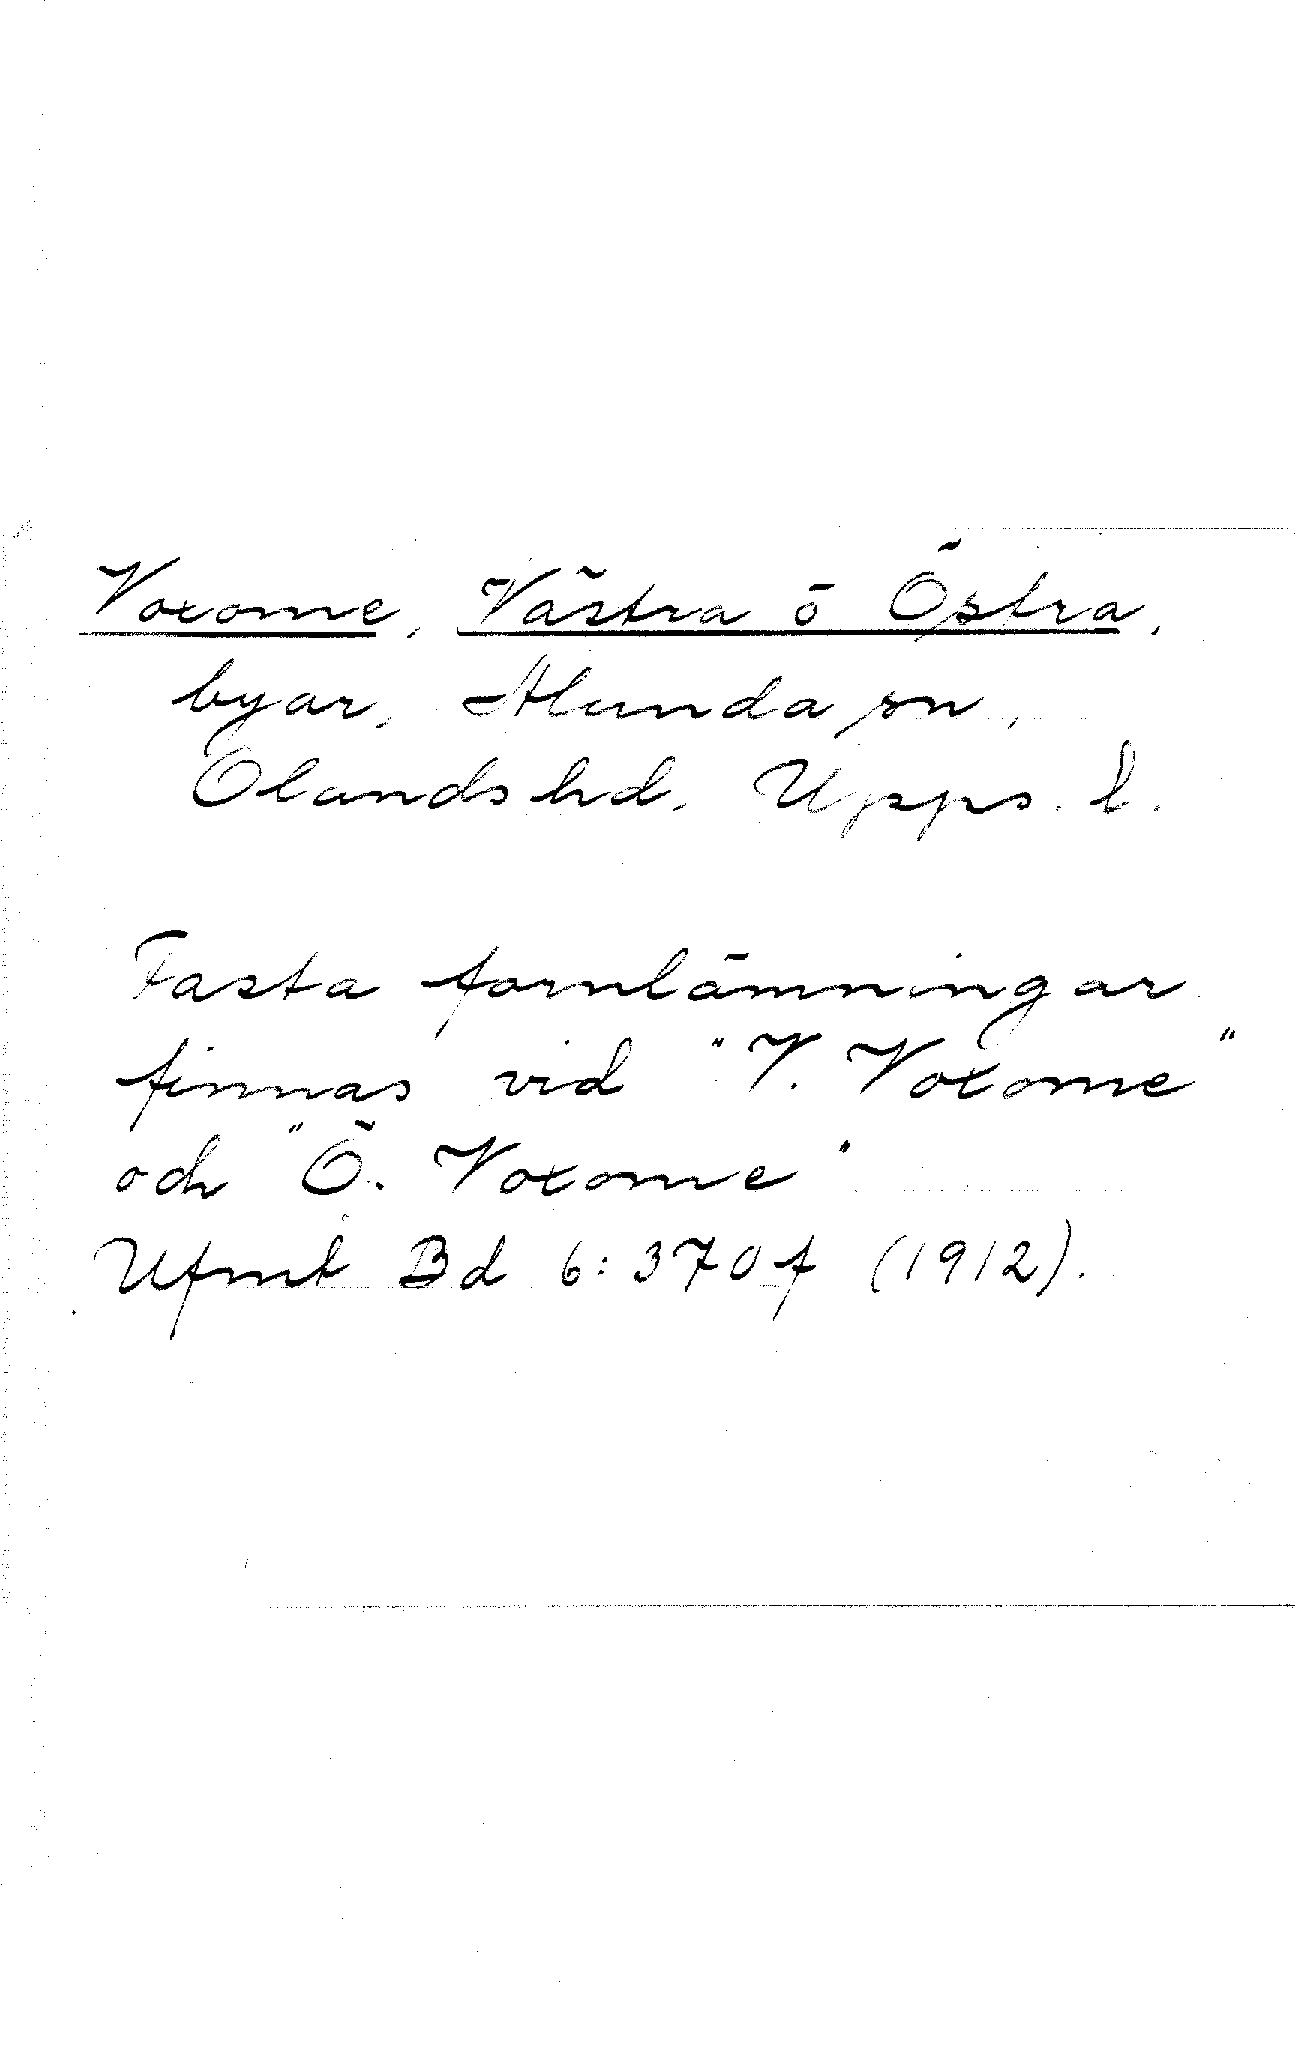 Voxome, Västra o Östra,
byar, Alunda sn,
Olands hd, Upps. l.
Fasta fornlämningar
finnas vid "V. Voxome"
och "Ö. Voxome"
Ufmt Bd 6:370f (1912).